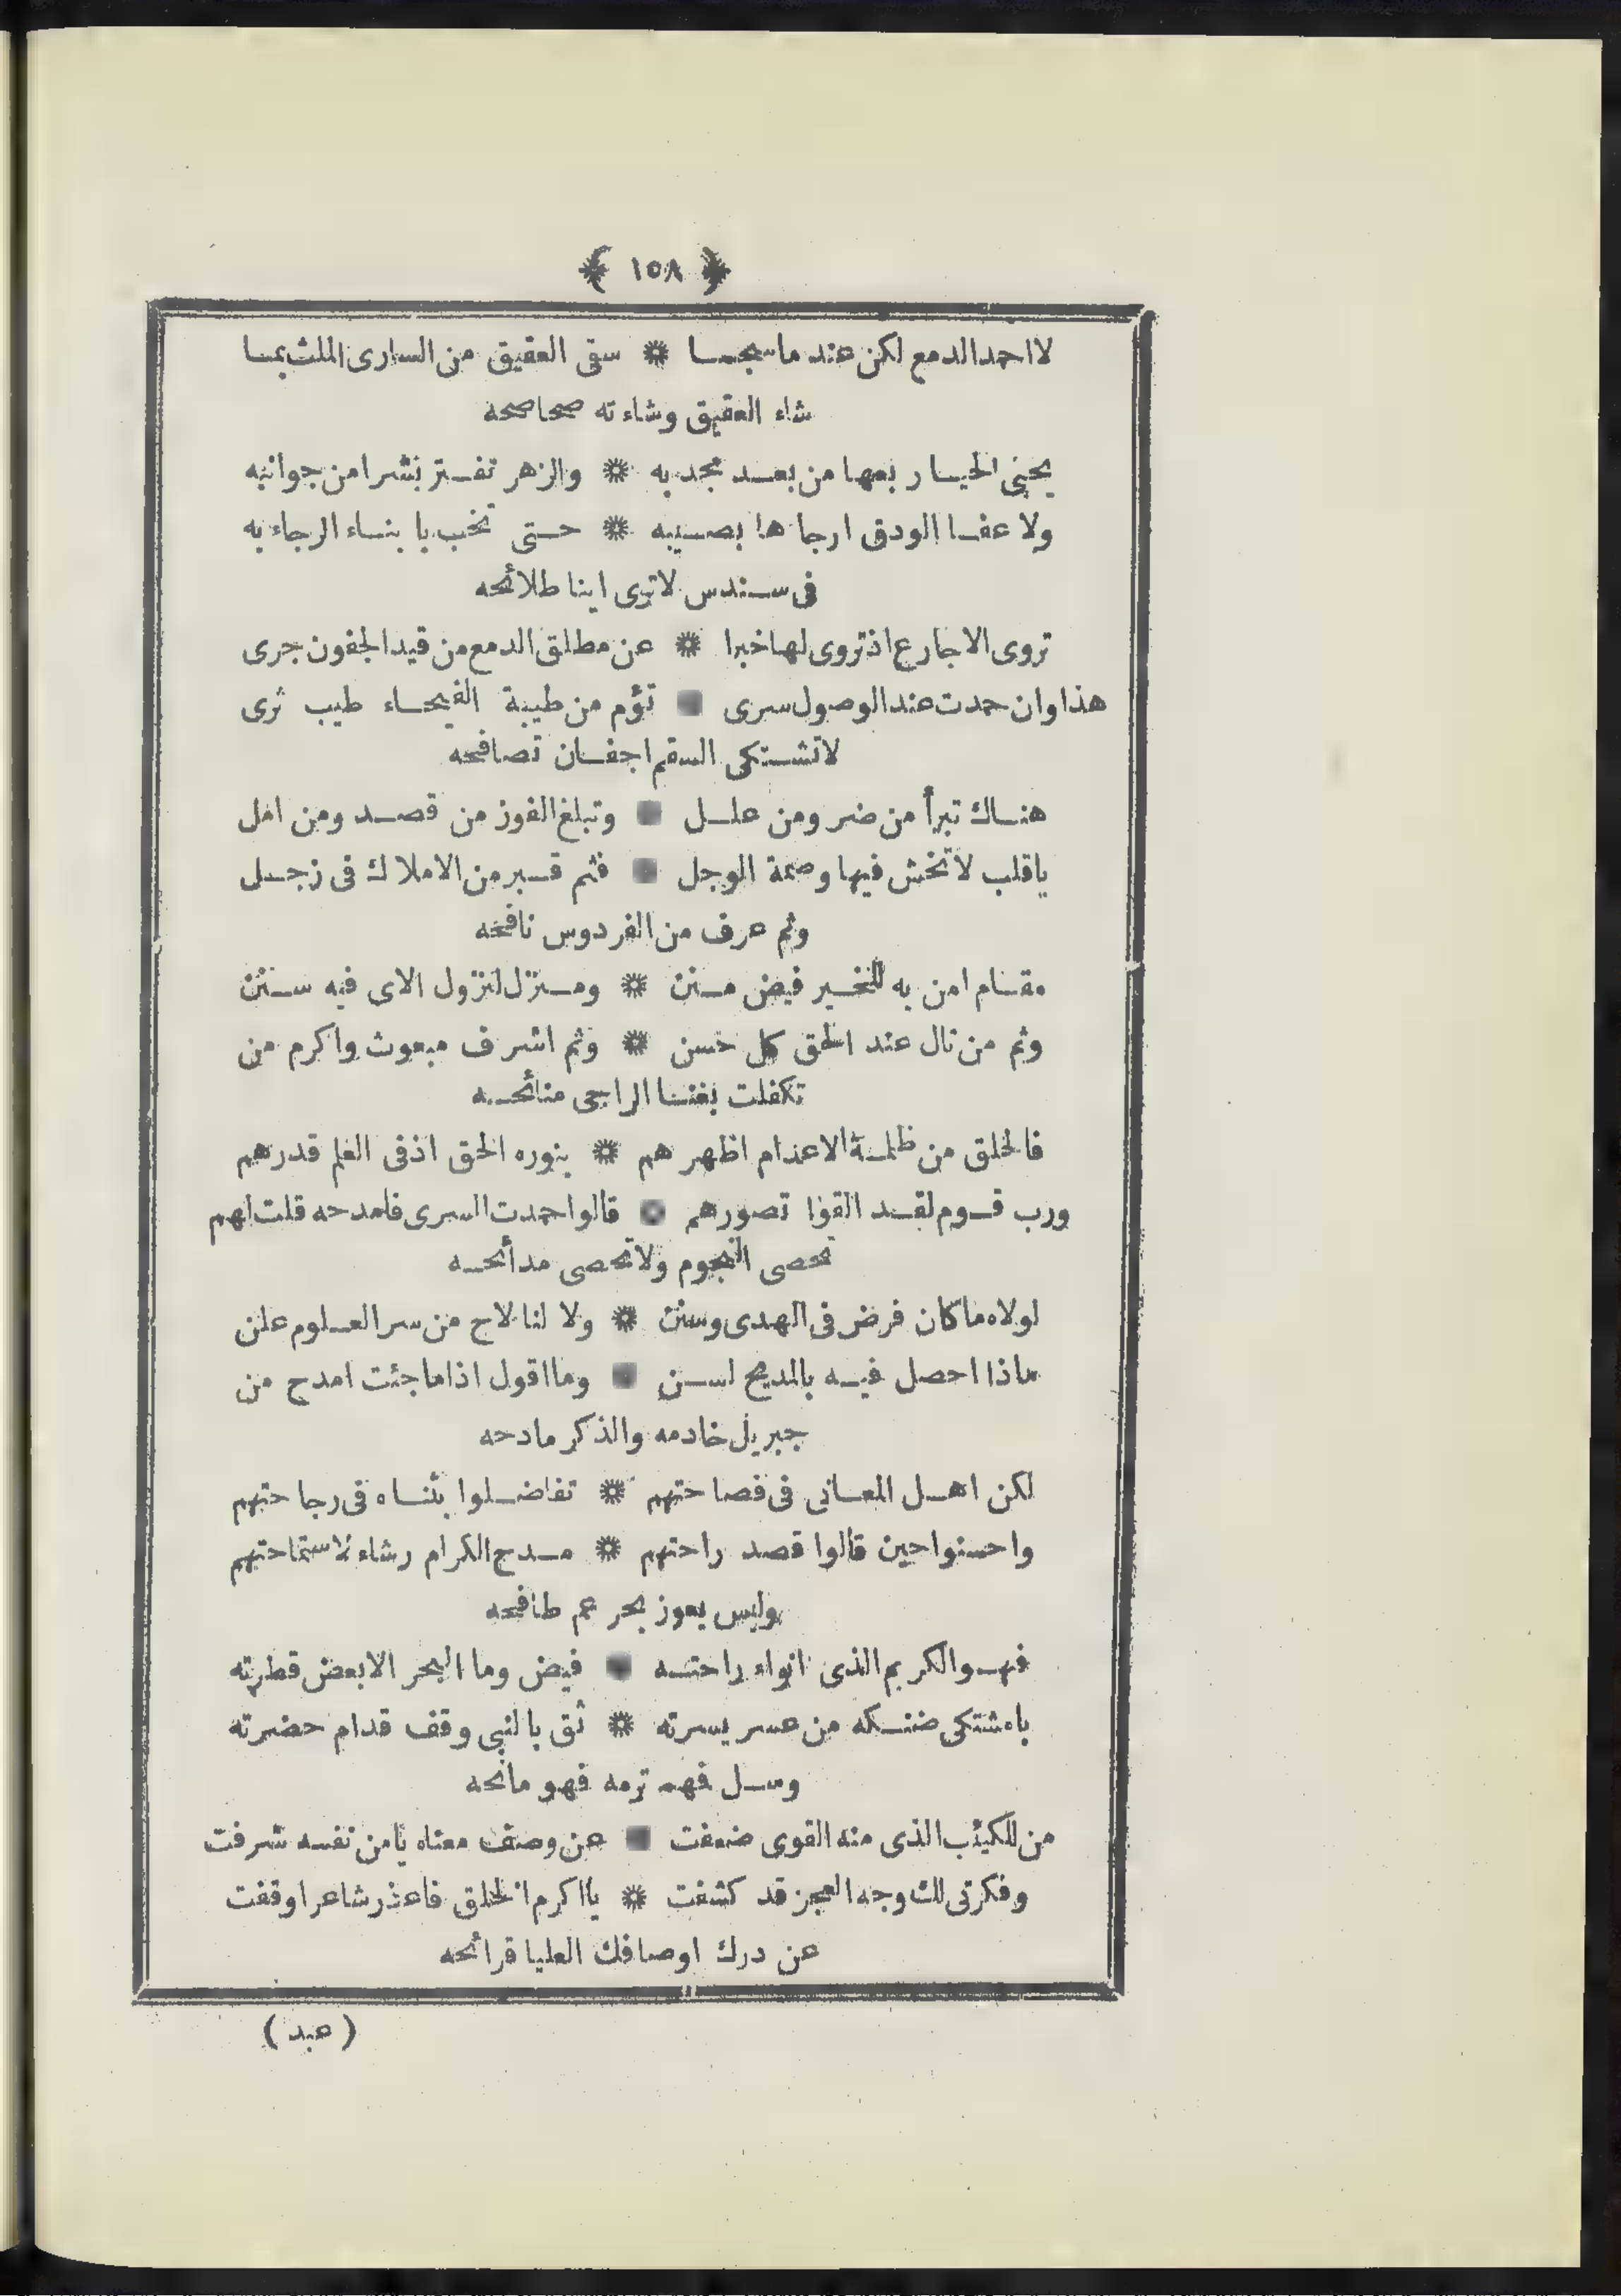 ﴿ ١٥٨ ﴾
لا احمد الدمع لكن عند ما سجمـا * سقى العقيق من السارى الملث بمـا
شاء العقيق وشاءته صحاصحه
يحيى الحيا ربعها من بعد مجدبه * والزهر تفتر بشرا من جوانبه
ولا عفا الودق ارجاها بصيبه * حتى تخب بابناء الرجاء به
فى سندس لا ترى اينا طلائحه
تروى الاجارع اذ تروى لها خبرا * عن مطلق الدمع من قيد الجفون جرى
هذا وان حمدت عند الوصول سرى * تؤم من طيبة الفيحاء طيب ثرى
لا تشتكى السقم اجفان تصافحه
هناك تبرأ من ضر ومن علل * وتبلغ الفوز من قصد ومن امل
يا قلب لا تخش فيها وصمة الوجل * فثم قبر من الاملاك فى زجل
وثم عرف من الفردوس نافحه
مقام امن به للخير فيض منن * ومنزل لنزول الاى فيه سنن
وثم من نال عند الحق كل حسن * وثم اشرف مبعوث واكرم من
تكفلت بغنا الراجى منائحه
فالخلق من ظلمة الاعدام اظهرهم * بنوره الحق اذ فى العلم قدرهم
ورب قوم لقد القوا تصورهم * قالوا حمدت السرى فامدحه قلت لهم
تحصى النجوم ولا تحصى مدائحه
لولاه ما كان فرض فى الهدى وسنن * ولا لنا لاح من سر العلوم علن
ماذا احصل فيه بالمديح لسن * وما اقول اذا ما جئت امدح من
جبريل خادمه والذكر مادحه
لكن اهل المعانى فى فصاحتهم * تفاضلوا بثناه فى رجاحتهم
واحسنوا حين قالوا قصد راحتهم * مدح الكرام رشاء لاستماحتهم
وليس يعوز بحر عم طافحه
فهو الكريم الذى انواء راحته * فيض وما البحر الا بعض قطرته
يا مشتكى ضنكه من عسر يسرته * ثق بالنبى وقف قدام حضرته
وسل فمهما ترمه فهو مانحه
من للكئيب الذى منه القوى ضعفت * عن وصف معناه يا من نفسه شرفت
وفكرتى لك وجه العجز قد كشفت * يا اكرم الخلق فاعذر شاعرا وقفت
عن درك اوصافك العليا قرائحه
( عبد )